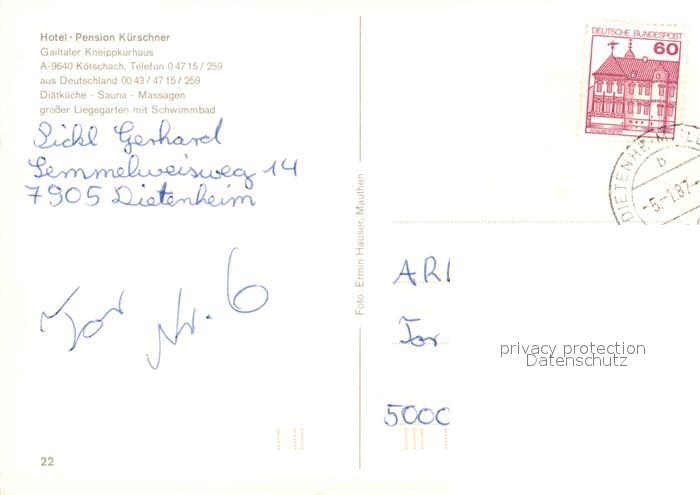 Hotel - Pension Kürschner
Gailtaler Kneippkurhaus
A-9640 Kötschach, Telefon 0 47 15 / 259
aus Deutschland 00 43 / 47 15 / 259
Diätküche - Sauna - Massagen
großer Liegegarten mit Schwimmbad
Sickl Gerhard
Semmelweisweg 14
7905 Dietenheim
Tor Nr. 6
22
Foto: Ermin Hauser, Mauthen
DEUTSCHE BUNDESPOST
60
DIETENHEIM
b
-5.-1.87.-
ARI
Tor
5000
privacy protection
Datenschutz